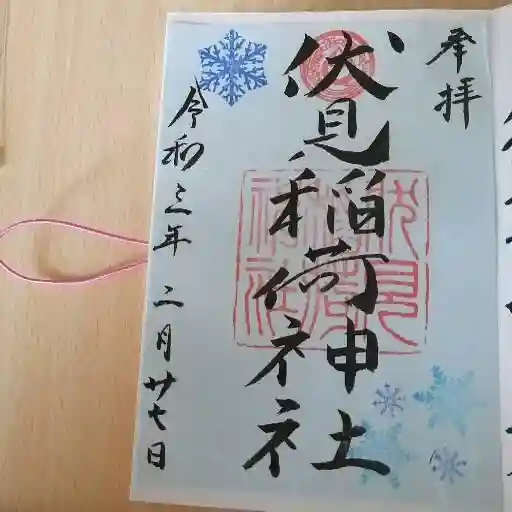 奉拝
伏見稲荷神社
令和三年二月廿七日